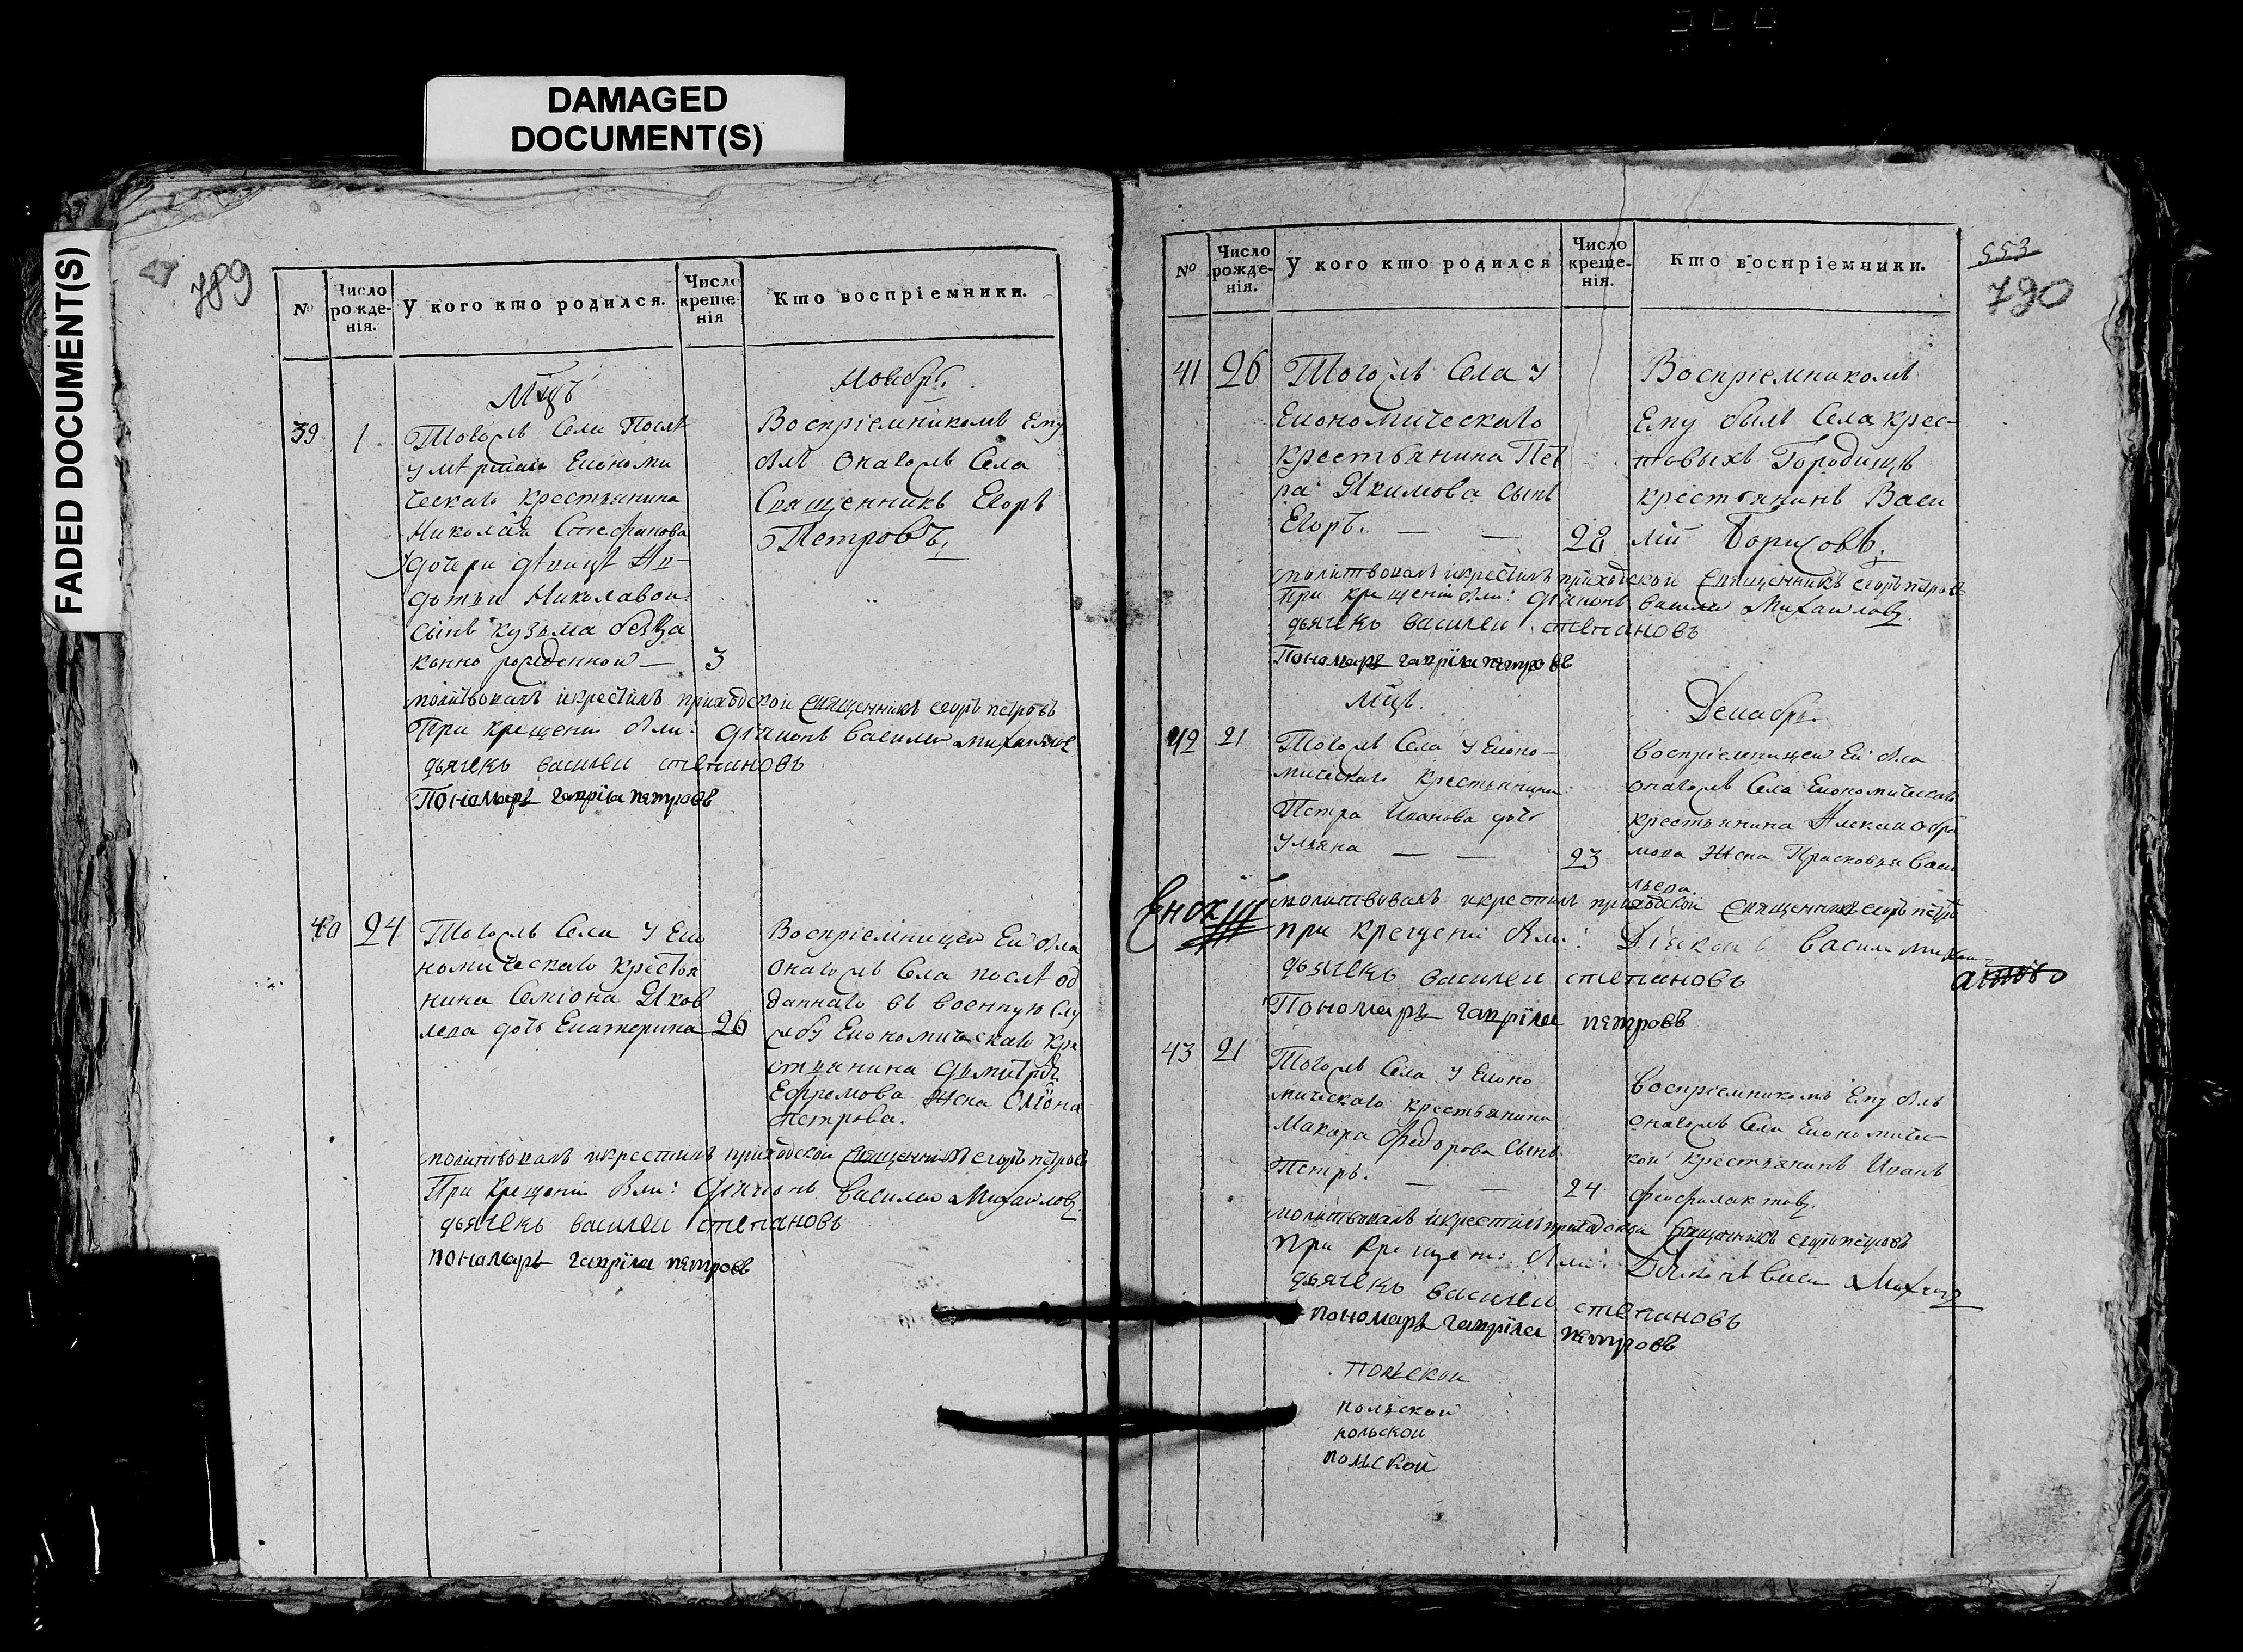 DAMAGED
DOCUMENT(S)
FADED DOCUMENT(S)
789
№
Число рожде-нія.
У кого кто родился.
Число креще-нія
Кто воспріемники.
Мцъ
Ноябрь
39
1
Тогожъ Села Послѣ
умѣршаго Економи
ческаго крестьянина
Николая Стефанова
дочери дѣвицы Ав-
дотьи Николавои
сынъ кузьма безза
конно рожденной —
3
Воспріемникомъ Ему
былъ Онагожъ Села
Священникъ Егоръ
Петровъ.
молитвовалъ икрестилъ приходской священникъ егоръ петровъ
При крещеніи были: діяконъ василей михаиловъ
дьячекъ василеи степановъ
Пономарь гаврїла петровъ
40
24
Тогожъ Села У Еко
номическаго крестья
нина Семіона Яков
лева дочь Екатерина
26
Воспріемницеи Еи была
Онагожъ Села послѣ од
даннаго въ военную слу
жбу Економическаго кре
стьянина Димитрія
Ефромова жена
Петрова.
молитвовалъ икрестилъ приходской священникъ егоръ петровъ
При крещеніи были: діяконъ Василеи Михаиловъ
дьячекъ василеи степановъ
пономарь гаврїла петровъ
553
790
№
Число рожде-нія.
У кого кто родился
Число креще-нія.
Кто воспріемники.
41
26
Тогожъ Села У
Економическаго
крестьянина Пет
ра Якимова сынъ
Егоръ. — —
28
Воспріемникомъ
Ему былъ Села крес-
товыхъ Городищъ
крестьянинъ Васи
лїй Борисовъ.
молитвовалъ икрестилъ приходской священникъ егоръ петровъ
При крещеніи были: діяконъ василеи Михаиловъ
дьячекъ василеи степановъ
Пономарь гаврїла петровъ
Мцъ.
Декабрь.
42
21
Тогожъ Села У Еконо-
мическаго крестьянина
Петра Иванова дочь
Ульяна — —
23
воспріемницеи Еи была
онагожъ Села Економическаго
крестьянина Алексия Обра
мова Жена Прасковья Васи
льева.
молитвовалъ икрестилъ приходской священникъ егоръ петровъ
при крещеніи были: Діяконъ Васили михаи
дьячекъ василеи степановъ
Пономарь гаврїла петровъ
43
21
Тогожъ Села У Еконо
мическаго крестьянина
Макара Федорова сынъ
Петръ. — —
24
воспріемникомъ Ему былъ
онагожъ Села Економичес-
кой крестьянинъ Иванъ
Феофилактовъ.
молитвовалъ икрестилъ приходской священникъ егоръ петровъ
При крещеніи были: Діяконъ васи Михаи
дьячекъ василеи степановъ
пономарь гаврїла петровъ
польскои
польской
польскои
польской